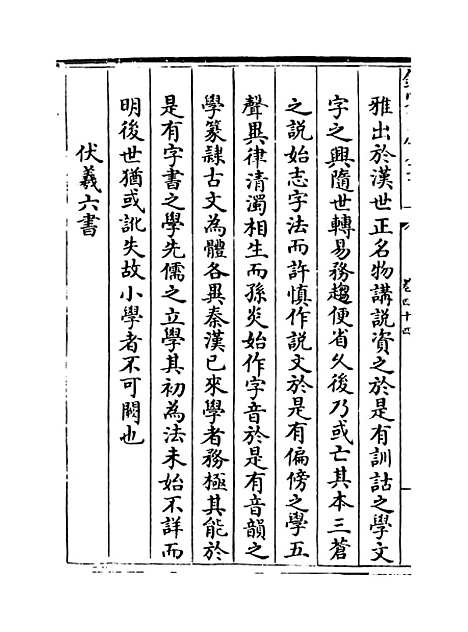 雅出於漢世正名物講說資之於是有訓詁之學文
字之興隨世轉易務趨便省乆後乃或亡其本三蒼
之説始志字法而許慎作説文於是有偏傍之學五
聲異律清濁相生而孫炎始作字音於是有音韻之
學篆隷古文為體各異秦漢已來學者務極其能於
是有字書之學先儒之立學其初為法未始不詳而
明後世猶或訛失故小學者不可闕也
伏羲六書
卷四十四